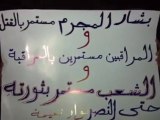 بشار المجرم مستمر بالقتل
و
المراقبين مستمرين بالمراقبة
و
الشعب مستمر بثورته
حتى النصر